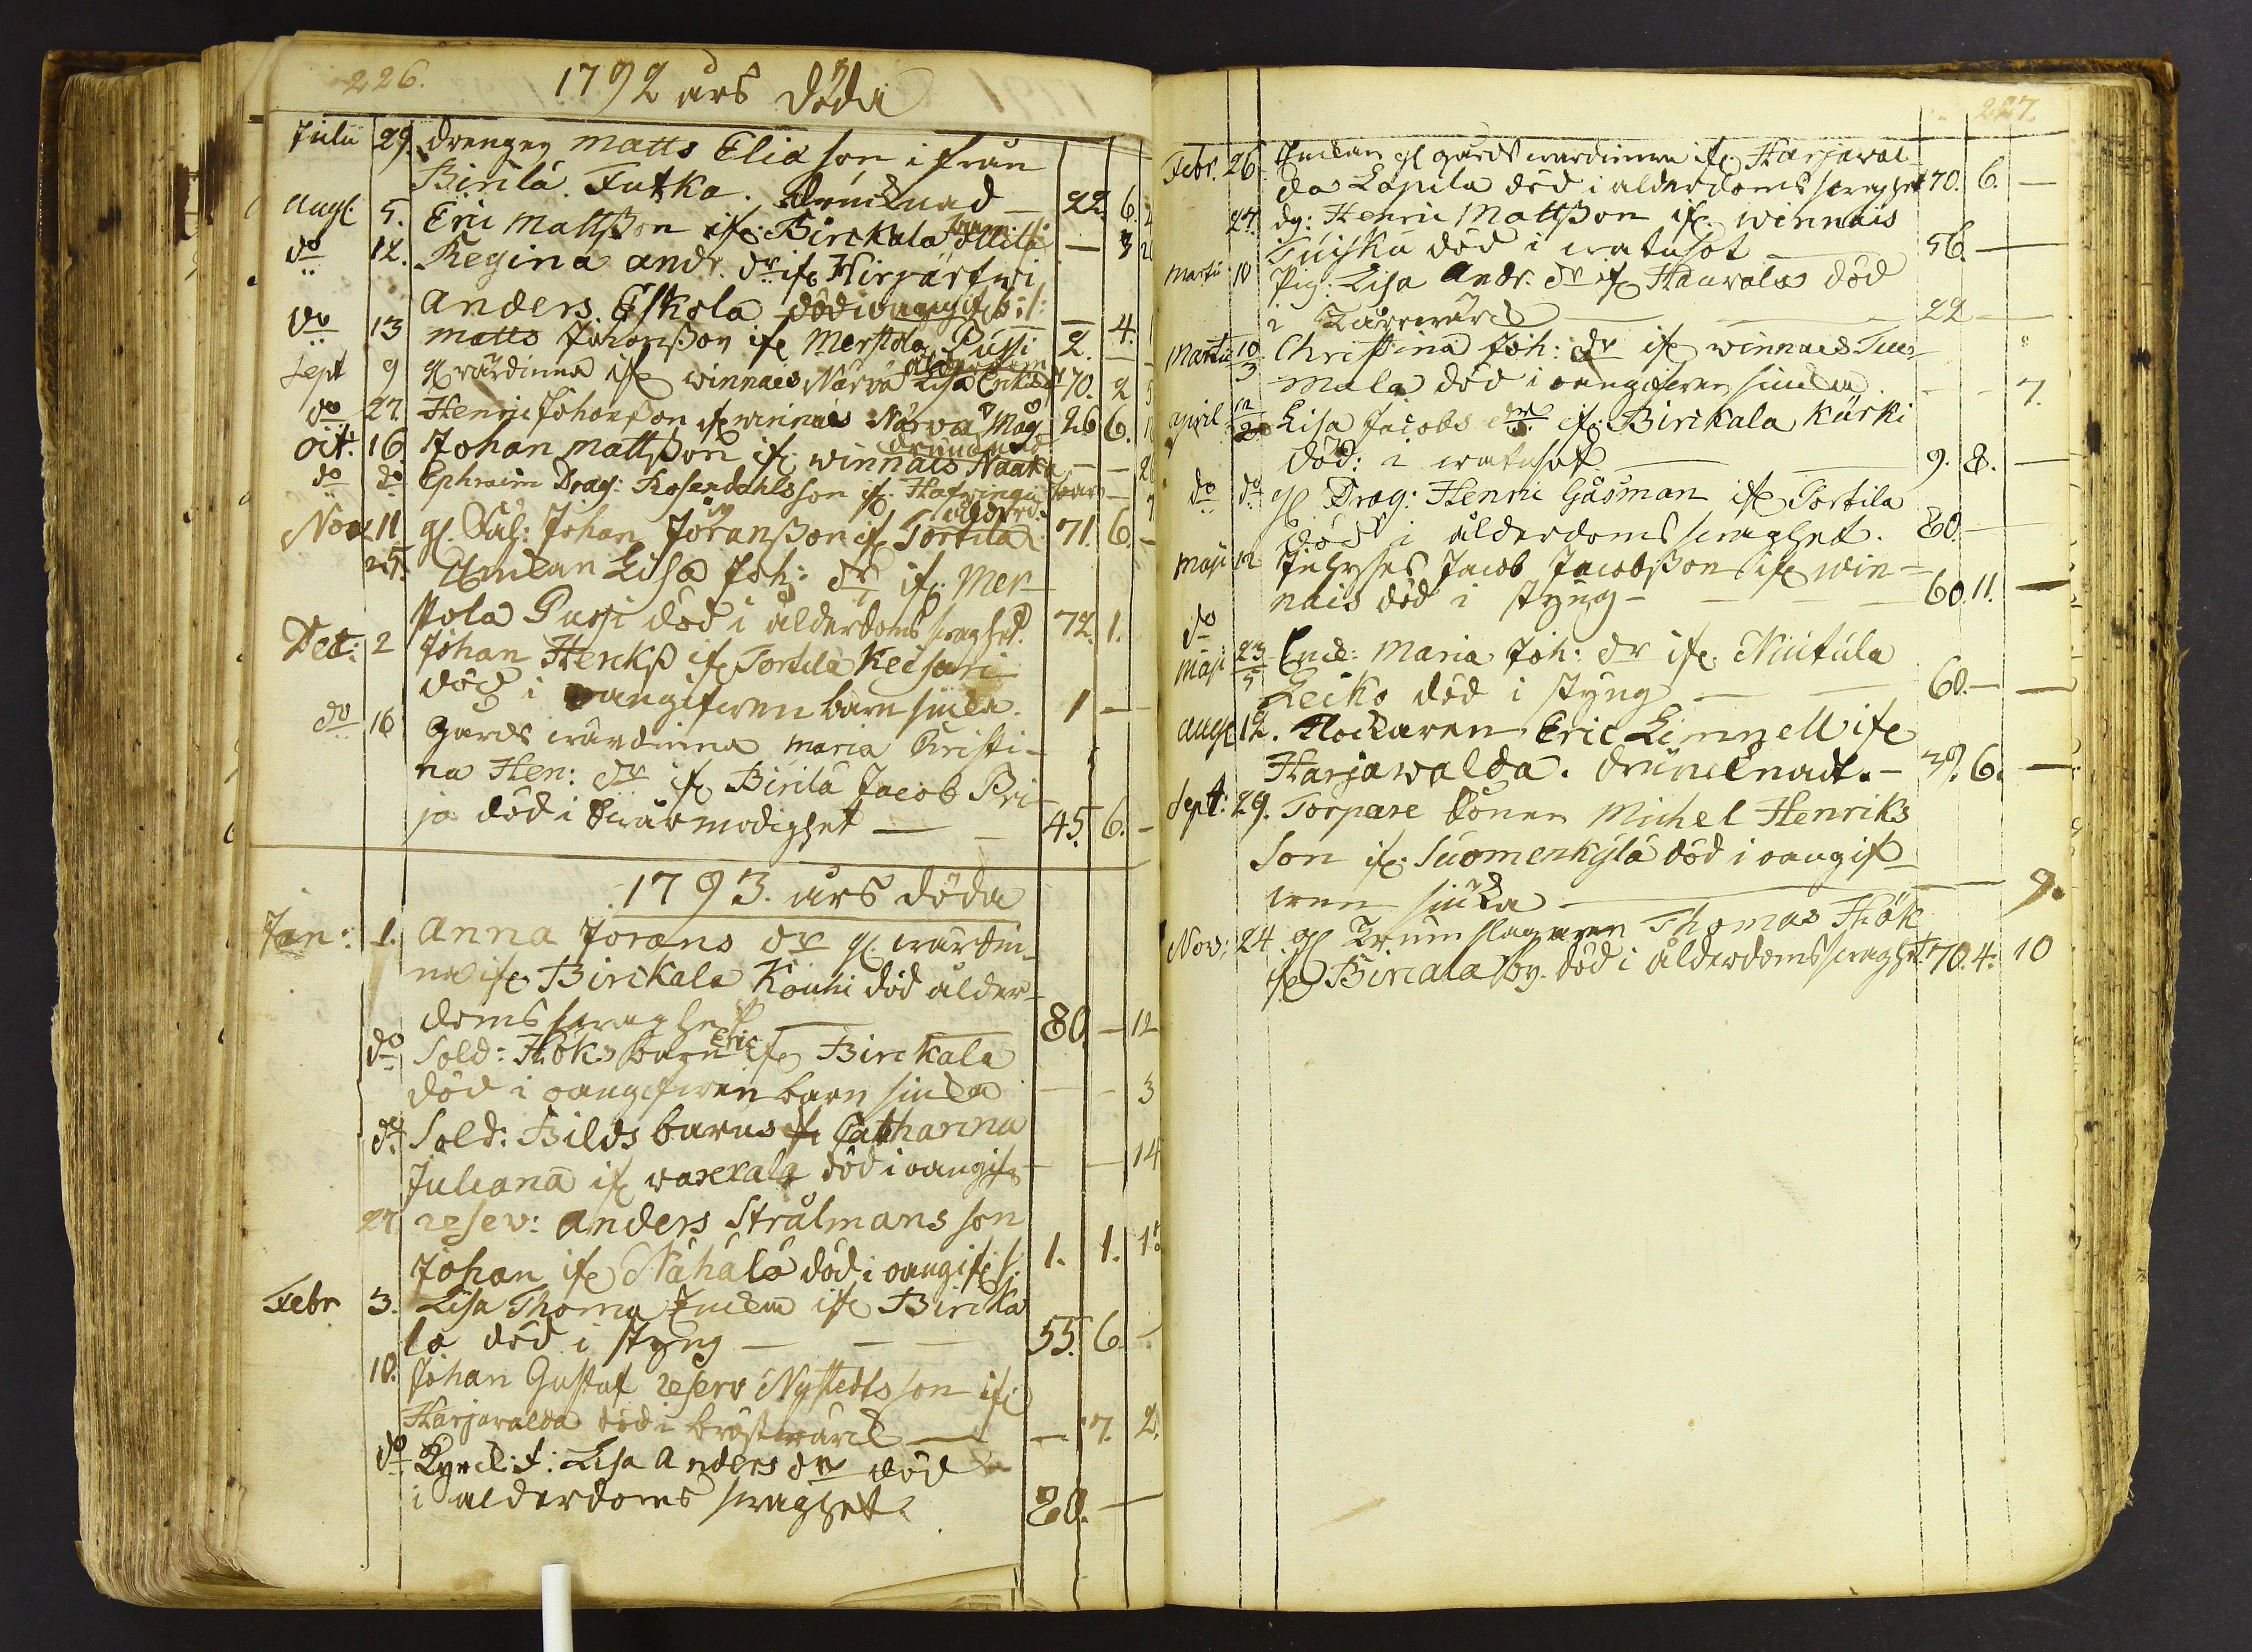 226.
1792 års döda
Julii 29. drengen Matts Elia son i från
Birilä Futka. drucknad 22. 6.
Aug. 5. Eric Mattsson ifr. Birckala — 3
do 12. Regina Andr. dr ifr Hirjärfwi
Anders Eskola död i oangifs: — 4.
do 13 Matts Johansson ifr Merstola Pussi 2. —
Sept 9 gl wärdinna ifr winnais Närwä Lisa 70. 2
do 27. Henric Johansson ifr winnais Närwä Måg 26 6.
drucknad
Oct. 16 Johan Mattsson ifr winnais Naaka — —
do do Ephraim Drag: Rosendahls son ifr.
Nov 11 gl. Johan Joransson ifr Tortila 71. 6. —
25. Enckan Lisa Joh: dr ifr. Mer-
stola Pussi död i ålderdoms swaghet. 72. 1.
Dec: 2 Johan Hencks ifr Tortila Keisari
död i oangifwen barn siucka. 1 —
do 16 Gårds wärdinna Maria Christi-
na Hen: dr ifr Birilä Jacob Pri-
ja död i swårmodighet — 45. 6. —
1793. års döda
Jan: 1. Anna Jorans dr gl. wärdin-
na ifr. Birckala Kouhi död ålder-
doms swaghet 80. — 12
do Sold: Höks barn Eric ifr Birckala
död i oangifwen barn siucka — — 3
do Sold: Bilds barns Catharina
Juliana ifr död i oangifs — — 14
27. reserv: Anders Strålmans son
Johan ifr Nähälä död i oangifs. 1. 1.
Febr 3. Lisa Thoma Enckan ifr Birika
la död i styng — — 55. 6. —
10. Johan Gustaf reserv Nystedts son ifr
Harjawalda död i bröstwärck — — 7. 2.
do Lisa Anders dr död
i alderdoms swaghet 80. —
227.
Febr. 26 Enckan gl gårds wärdinna ifr. Harjawal-
da Lapila död i alderdoms swaghet 70. 6. —
27. dg: Henric Mattsson ifr. winnais
Tuisku död i watusot 56. —
Martii 10 Pig. Lisa Andr. dr ifr Hawala död
i 22 —
Martii 10/3 Christina Joh: dr ifr winnais Tuo-
mala död i oangifwen siucka. — 7.
April 12 Lisa Jacobs dr ifr. Birikala Kärki
död: i watusot — 9. 8. —
do do gl Drag: Henric Gåsman ifr Tortila
död i ålderdoms swaghet. 80. —
Maji 12 Jacob Jacobsson ifr win-
nais död i styng — 60. 11. —
do
Maji 23/5 Enck: Maria Joh: dr ifr. Niutula
Leiko död i styng — 60. — —
Aug 12. Klockaren Eric Limnell ifr
Harjawalda. drucknadt. — 6. —
Sept: 29. Torpare sonen Michel Henriks
son ifr. Suomenkylä död i oangif-
wen siucka — 9.
Nov: 24. gl Trumslagaren Thomas Hök
ifr Birckala by. död i ålderdoms swaghet. 70. 4. 10